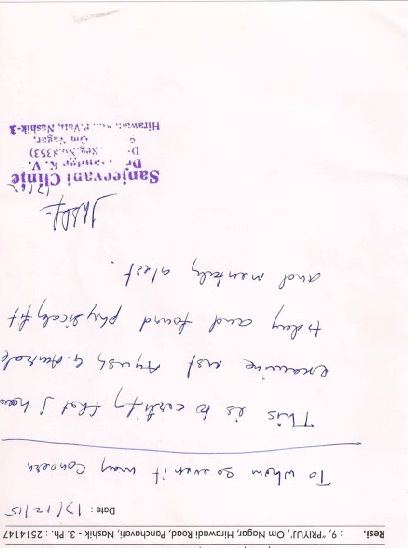 Resi. : 9, "PRIYUJ", Om Nagar, Hirawadi Road, Panchavati, Nashik - 3. Ph. : 2514147
Date : 17/12/15
To whom so ever it may concern
This is to certify that I have
examine mst Ayush G.
today and found physically fit
and mentally alert.
17/12
Sanjeevani Clinic
Dr. K. V.
Reg. No. 3353)
Om Nagar,
Hirawadi, P.Vati, Nashik-3